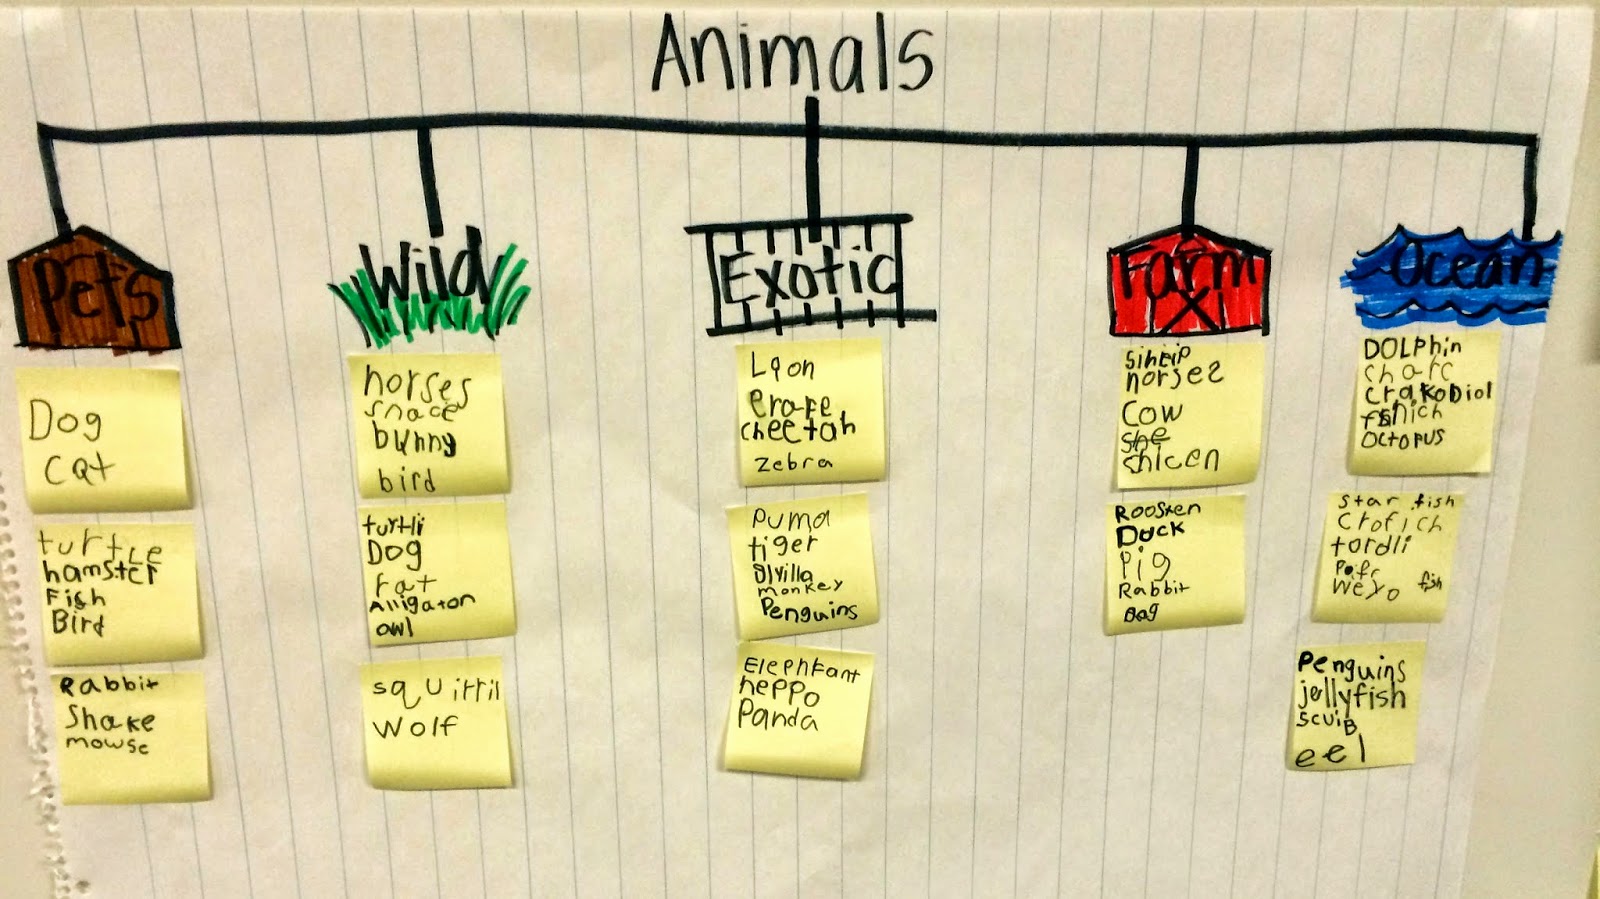 Animals
Pets
Wild
Exotic
Farm
Ocean
Dog
Cat
turtle
hamster
Fish
Bird
Rabbit
Snake
mowse
horses
snace
bunny
bird
turtli
Dog
rat
Alligaton
owl
squirril
wolf
Lion
erafe
cheetah
zebra
Puma
tiger
monkey
Penguins
Elephant
heppo
Panda
siheip
horses
cow
she
chicen
Roosten
Duck
Pig
Rabbit
Dog
DOLPhin
sharc
crakoDiol
octopus
star fish
crofich
tordli
Penguins
jellyfish
scuiB
eel